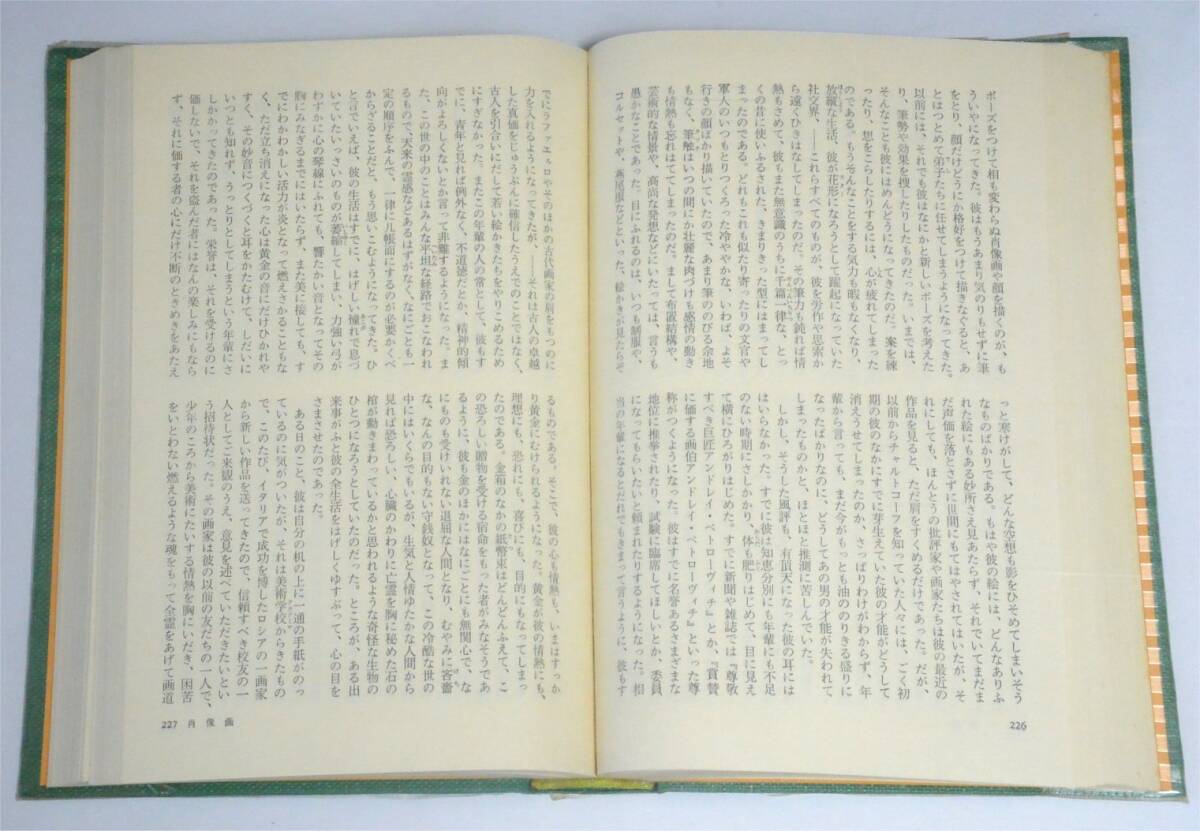 ポーズをつけて相も変わらぬ肖像画や顔を描くのが、も
ういやになってきた。彼はもうあまり気のりもせずに筆
をとり、顔だけどうにか格好をつけて描きなぐると、あ
とはつとめて弟子たちに任せてしまうようになってきた。
以前には、それでも彼はなにかと新しいポーズを考えた
り、筆勢や効果を捜したりしたものだった。いまでは、
そんなことも彼にはめんどうになってきたのだ。案を練
ったり、想をこらしたりするには、心が疲れてしまった
のである。もうそんなことをする気力も暇もなくなり、
放縦な生活、彼が花形になろうとして躍起になっていた
社交界、――これらすべてのものが、彼を労作や思索か
ら遠くひきはなしてしまったのだ。その筆力も鈍れば情
熱もさめて、彼はまた無意識のうちに千篇一律な、とっ
くの昔に使いふるされた、きまりきった型にはまってし
まったのである。どれもこれも似たり寄ったりの文官や
軍人のいつもとりつくろった冷ややかな、いわば、よそ
行きの顔ばかり描いていたので、あまり筆ののびる余地
もなく、筆触はいつの間にか壮麗な肉づけも感情の動き
も情熱も忘れはててしまったのだ。まして布置結構や、
芸術的な情景や、高尚な発想などにいたっては、言うも
愚かなことであった。目にふれるのは、いつも制服や、
コルセットや、燕尾服などといった、絵かきが見たらぞ
っと寒けがして、どんな空想も影をひそめてしまいそう
なものばかりである。もはや彼の絵には、どんなありふ
れた絵にもある妙所さえ見あたらず、それでいてまだま
だ声価を落とさずに世間にもてはやされてはいたが、そ
れにしても、ほんとうの批評家や画家たちは彼の最近の
作品を見ると、ただ肩をすくめるだけであった。だが、
以前からチャルトコーフを知っていた人々には、ごく初
期の彼のなかにすでに芽生えていた彼の才能がどうして
消えうせてしまったのか、さっぱりわけがわからず、年
輩から言っても、まだ今がもっとも油ののりきる盛りに
なったばかりなのに、どうしてあの男の才能が失われて
しまったものかと、ほとほと推測に苦しんでいた。
しかし、そうした風評も、有頂天になった彼の耳には
はいらなかった。すでに彼は知恵分別にも年輩にも不足
のない時期にさしかかり、体も肥りはじめて、目に見え
て横にひろがりはじめた。すでに新聞や雑誌では『尊敬
すべき巨匠アンドレイ・ペトローヴィチ』とか、『賞賛
に価する画伯アンドレイ・ペトローヴィチ』といった尊
称がつくようになった。彼はすでに名誉あるさまざまな
地位に推挙されたり、試験に臨席してほしいとか、委員
になってもらいたいと頼まれたりするようになった。相
当の年輩になるとだれでもきまって言うように、彼もす
226
でにラファエㇽロやそのほかの古代画家の肩をもつのに
力を入れるようになってきたが、――それは古人の卓越
した真価をじゅうぶんに確信したうえでのことではなく、
古人を引合いにだして若い絵かきたちをやりこめるため
にすぎなかった。またこの年輩の人の常として、彼もす
でに、青年と見れば例外なく、不道徳だとか、精神的傾
向がよろしくないとか言って非難するようになった。ま
た、この世の中のことはみんな平坦な経路でおこなわれ
るもので、天来の霊感などあるはずがなく、なにごとも一
定の順序をふんで、一律に几帳面にするのが必要かくべ
からざることだと、もう思いこむようになってきた。ひ
と言でいえば、彼の生活はすでに、はげしい憧れで息づ
いていたいっさいのものが萎縮してしまい、力強い弓が
わずかに心の琴線にふれても、響たかい音となってその
胸にみなぎるまでにはいたらず、また美に接しても、す
でにわかわかしい活力が炎となって燃えさかることもな
く、ただ立ち消えになった心は黄金の音にだけひかれや
すく、その妙音につくづくと耳をかたむけて、しだいに
いつとも知れず、うっとりとしてしまうという年輩にさ
しかかってきたのであった。栄誉は、それを受けるのに
価しないで、それを盗んだ者にはなんの楽しみにもなら
ず、それに価する者の心にだけ不断のときめきをあたえ
るものである。そこで、彼の心も情熱も、いまはすっか
り黄金にむけられるようになった。黄金が彼の情熱にも、
理想にも、恐れにも、喜びにも、目的にもなってしまっ
たのである。金箱のなかの紙幣束はどんどんふえて、こ
の恐ろしい贈物を受ける宿命をもった者がみなそうであ
るように、彼も金のほかにはなにごとにも無関心で、な
にものも受けいれない退屈な人間となり、むやみに吝嗇
な、なんの目的もない守銭奴となって、この冷酷な世の
中にはいくらでもいるが、生気と人情ゆたかな人間から
見れば恐ろしい、心臓のかわりに亡霊を胸に秘めた石の
棺が動きまわっているかと思われるような奇怪な生物の
ひとつになろうとしていたのだった。ところが、ある出
来事がふと彼の全生活をはげしくゆすぶって、心の目を
さまさせたのであった。
ある日のこと、彼は自分の机の上に一通の手紙がのっ
ているのに気がついたが、それは美術学校からきたもの
で、このたび、イタリアで成功を博したロシアの一画家
から新しい作品を送ってきたので、信頼すべき校友の一
人としてご来観のうえ、意見を述べていただきたいとい
う招待状だった。その画家は彼の以前の友だちの一人で、
少年のころから美術にたいする情熱を胸にいだき、困苦
をいとわない燃えるような魂をもって全霊をあげて画道
227 肖像画